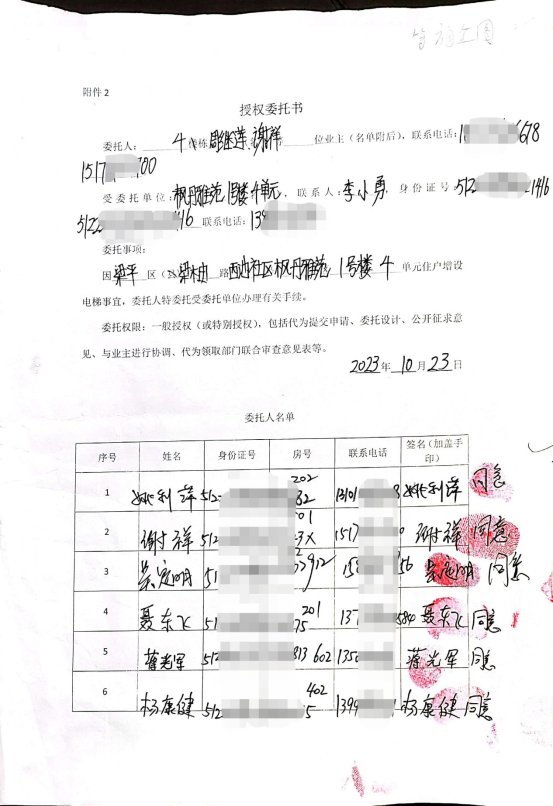 附件 2
授权委托书
委托人： 4 栋 谢祥 位业主（名单附后），联系电话：1 678
1517 00
受委托单位：枫丹雅苑1号楼4单元，联系人：李小勇 身份证号512 1416
5122 16 联系电话：139
委托事项：
因 梁平 区（ 路 西池社区枫丹雅苑 1号楼 4 单元住户增设
电梯事宜，委托人特委托受委托单位办理有关手续。
委托权限：一般授权（或特别授权），包括代为提交申请、委托设计、公开征求意
见、与业主进行协调、代为领取部门联合审查意见表等。
2023年 10 月 23 日
委托人名单
序号 姓名 身份证号 房号 联系电话 签名（加盖手印）
1 姚利萍 512 32 202 1310 8 姚利萍 同意
2 谢祥 512 3X 01 1517 0 谢祥 同意
3 明 51 912 15 56 明 同意
4 聂东飞 51 75 201 137 584 聂东飞 同意
5 蒋光军 512 313 602 1350 蒋光军 同意
6 杨康健 512 5 402 1399 杨康健 同意